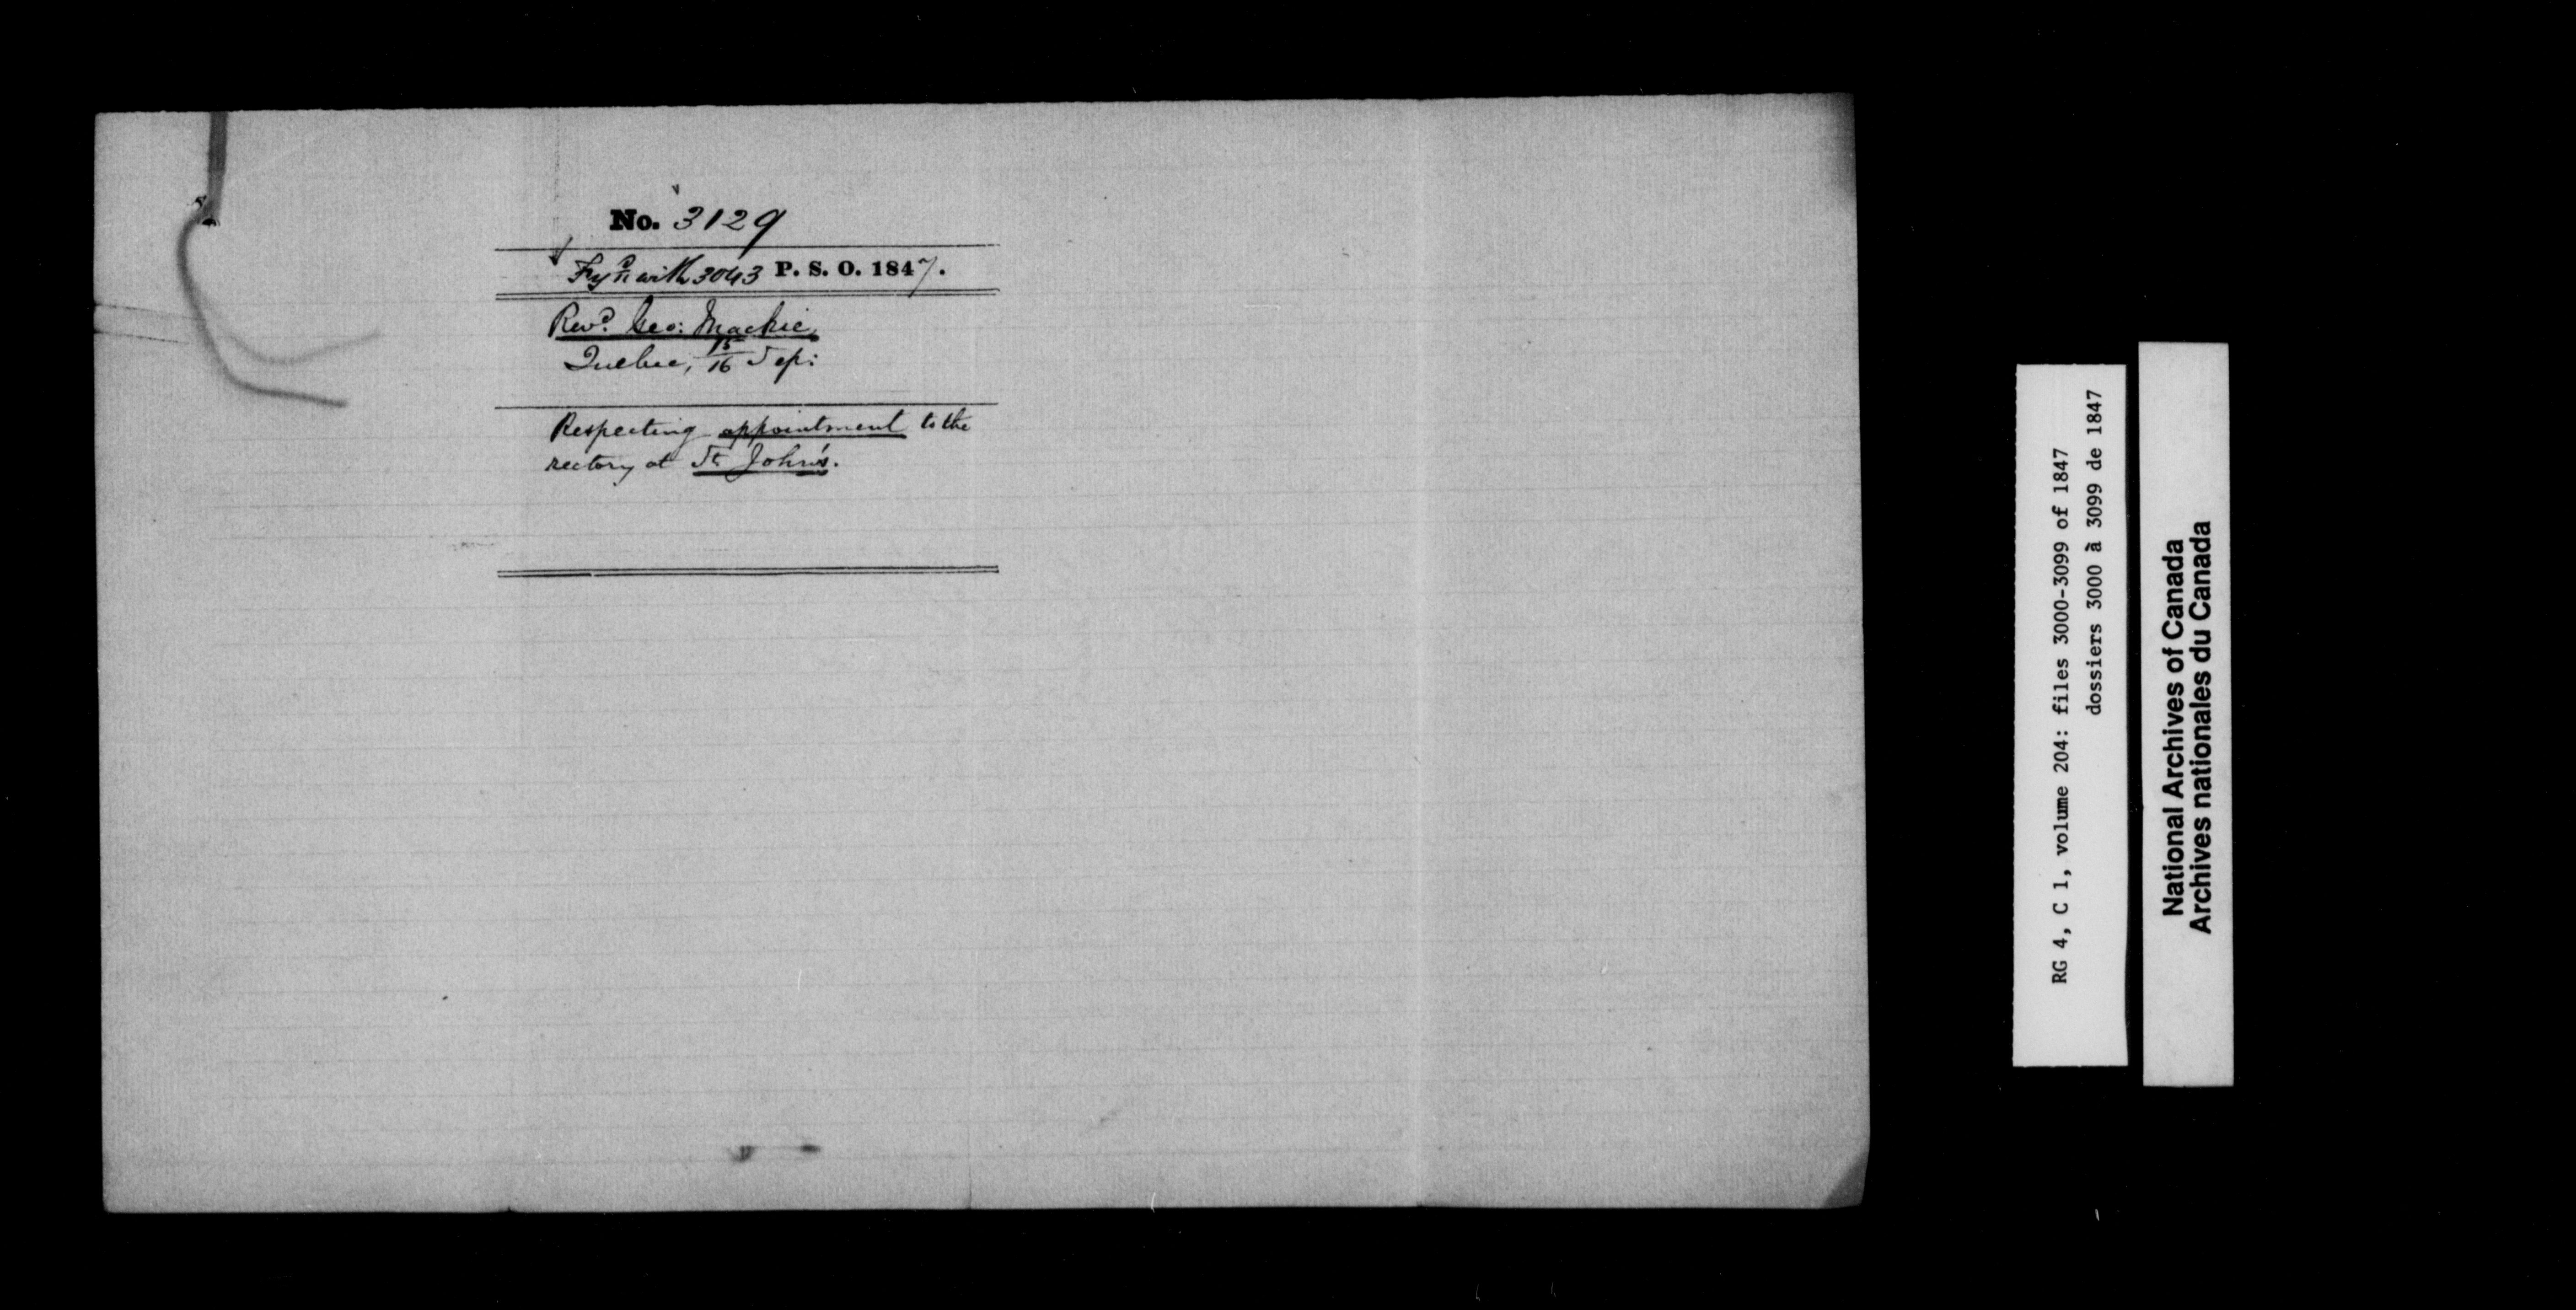 No. 3129
with 3043 P. S. O. 1847.
Revd. Geo: Mackie,
Quebec, 15/16 Sep:
Respecting appointment to the
rectory at St John's.
RG 4, C 1, volume 204: files 3000-3099 of 1847
dossiers 3000 à 3099 de 1847
National Archives of Canada
Archives nationales du Canada